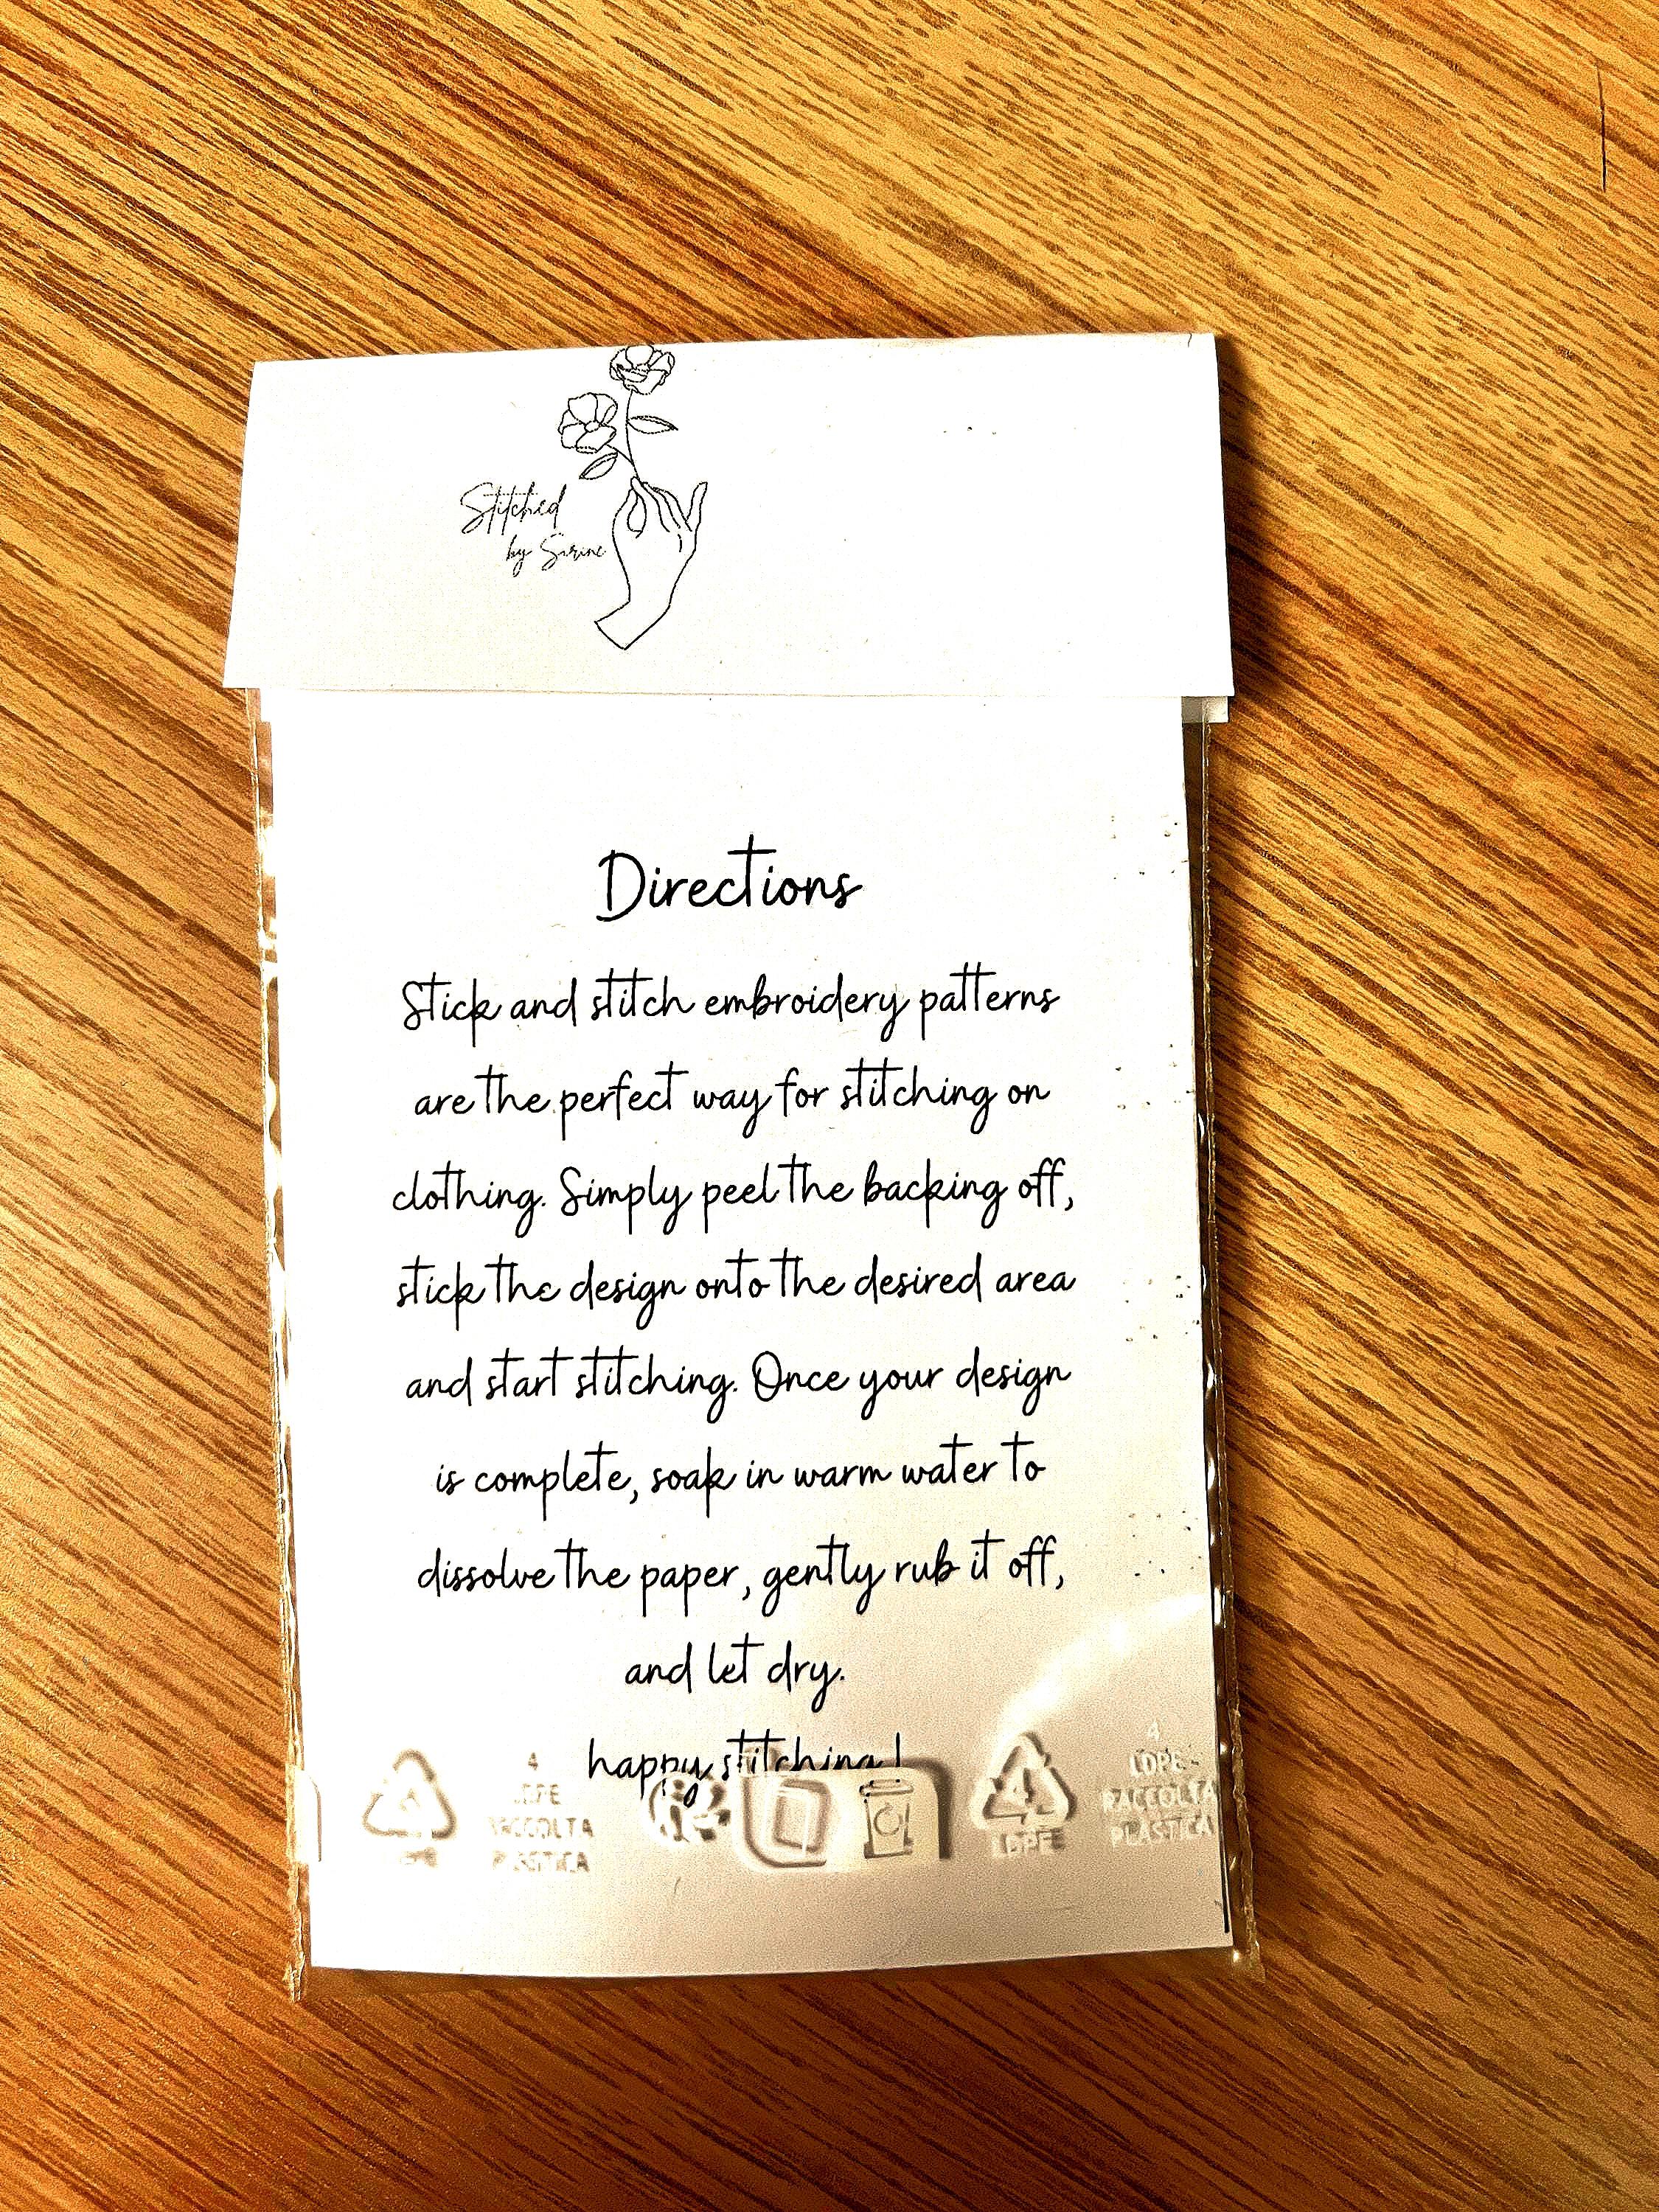 Stitched
by Sirine
Directions
Stick and stitch embroidery patterns
are the perfect way for stitching on
clothing. Simply peel the backing off,
stick the design onto the desired area
and start stitching. Once your design
is complete, soak in warm water to
dissolve the paper, gently rub it off,
and let dry.
happy stitching!
4
LDPE
RACCOLTA
PLASTICA
4
LDPE
4
LDPE-
RACCOLTA
PLASTICA